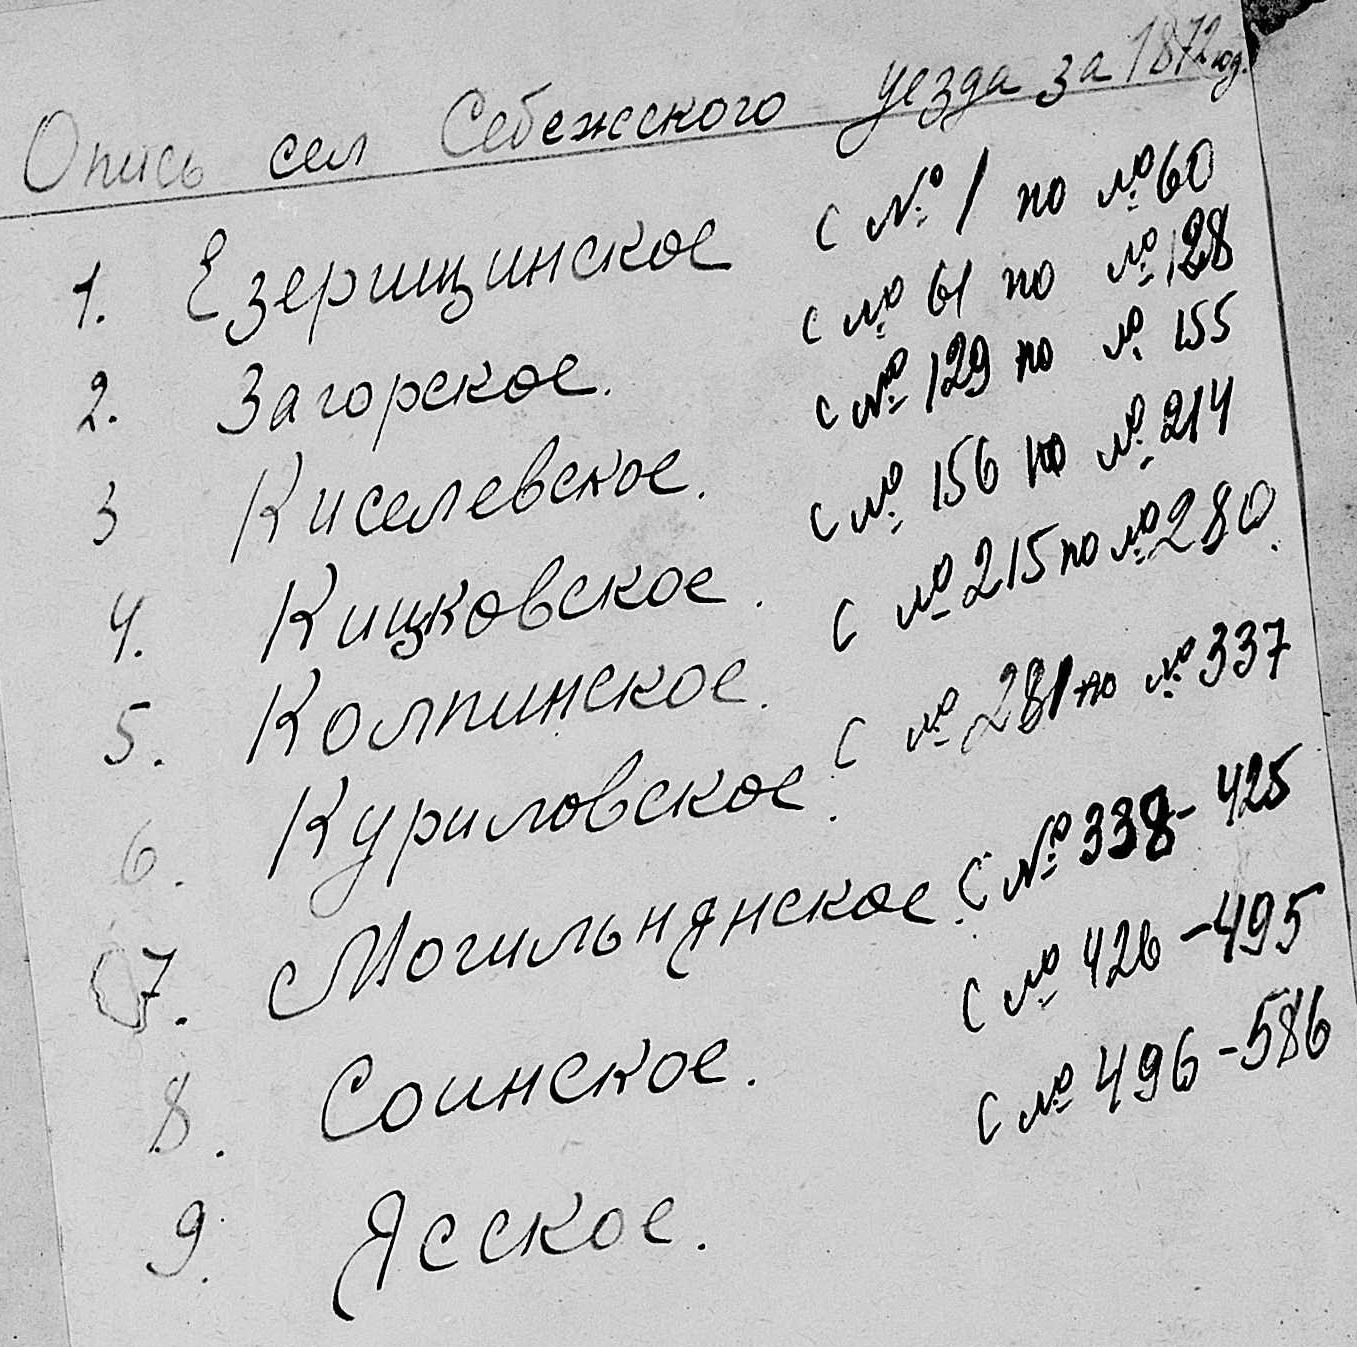 Опись сел Себежского уезда за 1872 год.
1. Езерищинское с № 1 по № 60
2. Загорское. с № 61 по № 128
3 Киселевское. с № 129 по № 155
4. Кицковское. с № 156 по № 214
5. Колпинское. с № 215 по № 280.
6. Куриловское. с № 281 по № 337
7. Могильнянское. с № 338 - 425
8. Соинское. с № 426 - 495
9. Ясское. с № 496 - 586